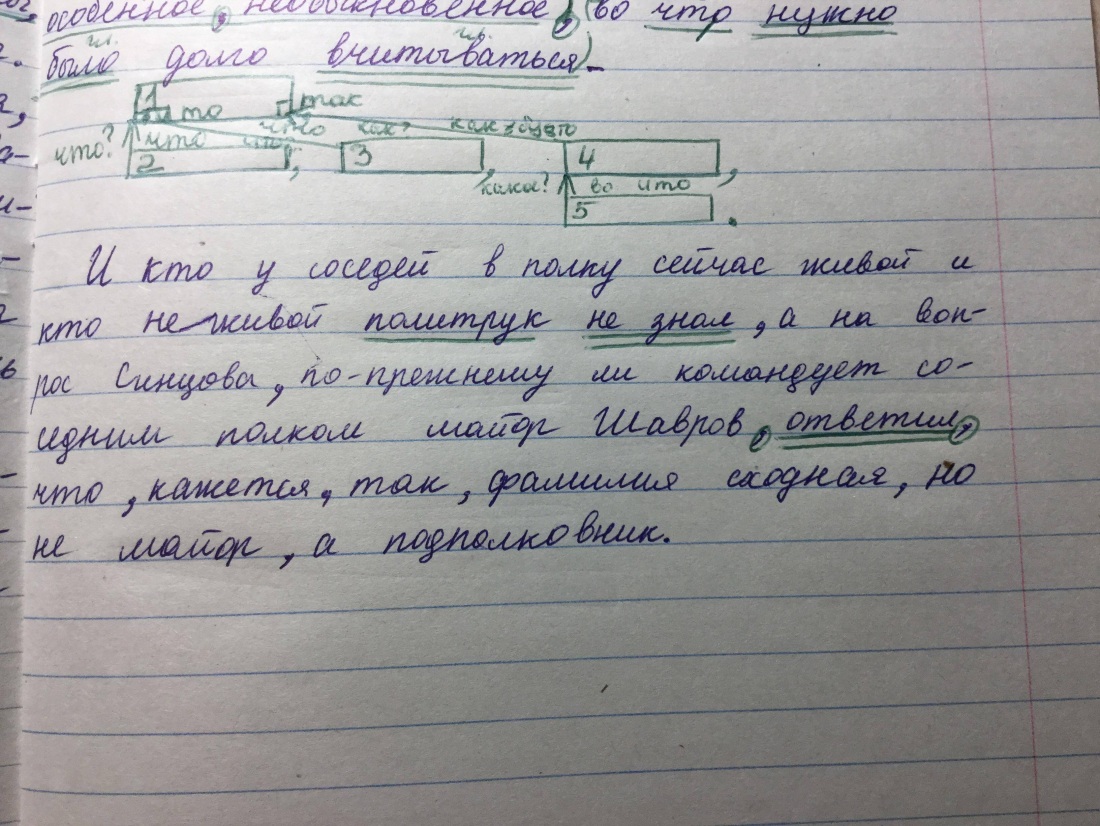 особенное, необыкновенное, (во что нужно
гл. гл.
было долго вчитываться).
1 то так
что как? как будто
что? что 2, 3, 4,
какое? во что
5.
И кто у соседей в полку сейчас живой и
кто не живой политрук не знал, а на воп-
рос Синцова, по-прежнему ли командует со-
седним полком майор Шавров, ответил,
что, кажется, так, фамилия сходная, но
не майор, а подполковник.